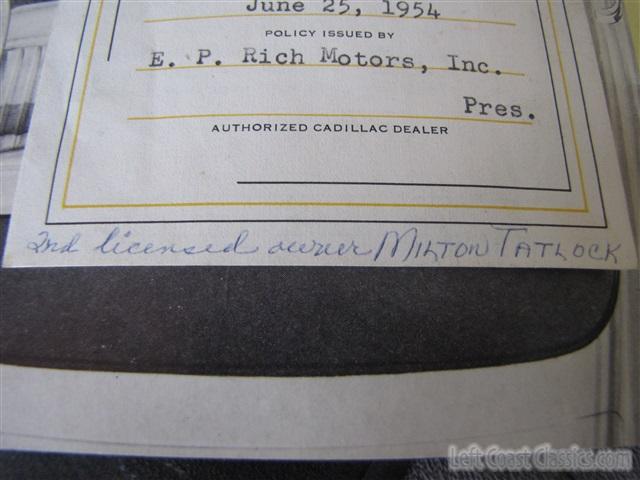 June 25, 1954
POLICY ISSUED BY
E. P. Rich Motors, Inc.
Pres.
AUTHORIZED CADILLAC DEALER
2nd licensed owner MILTON TATLOCK
Left Coast Classics.com